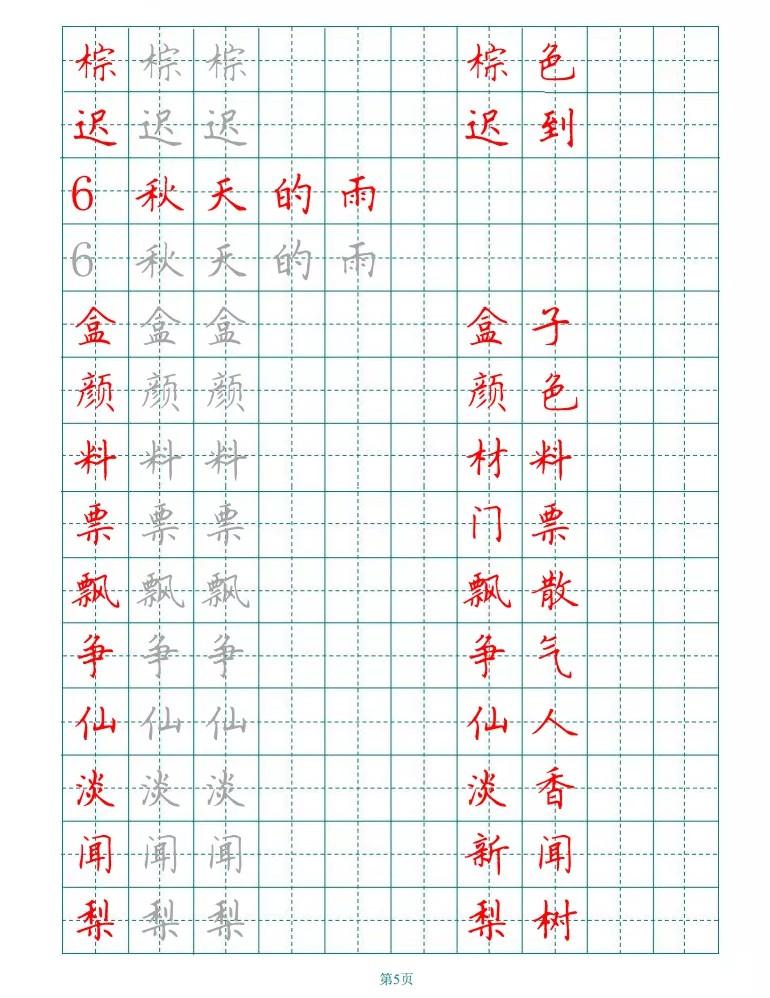 棕 棕 棕 棕 色
迟 迟 迟 迟 到
6 秋 天 的 雨
6 秋 天 的 雨
盒 盒 盒 盒 子
颜 颜 颜 颜 色
料 料 料 材 料
票 票 票 门 票
飘 飘 飘 飘 散
争 争 争 争 气
仙 仙 仙 仙 人
淡 淡 淡 淡 香
闻 闻 闻 新 闻
梨 梨 梨 梨 树
第5页